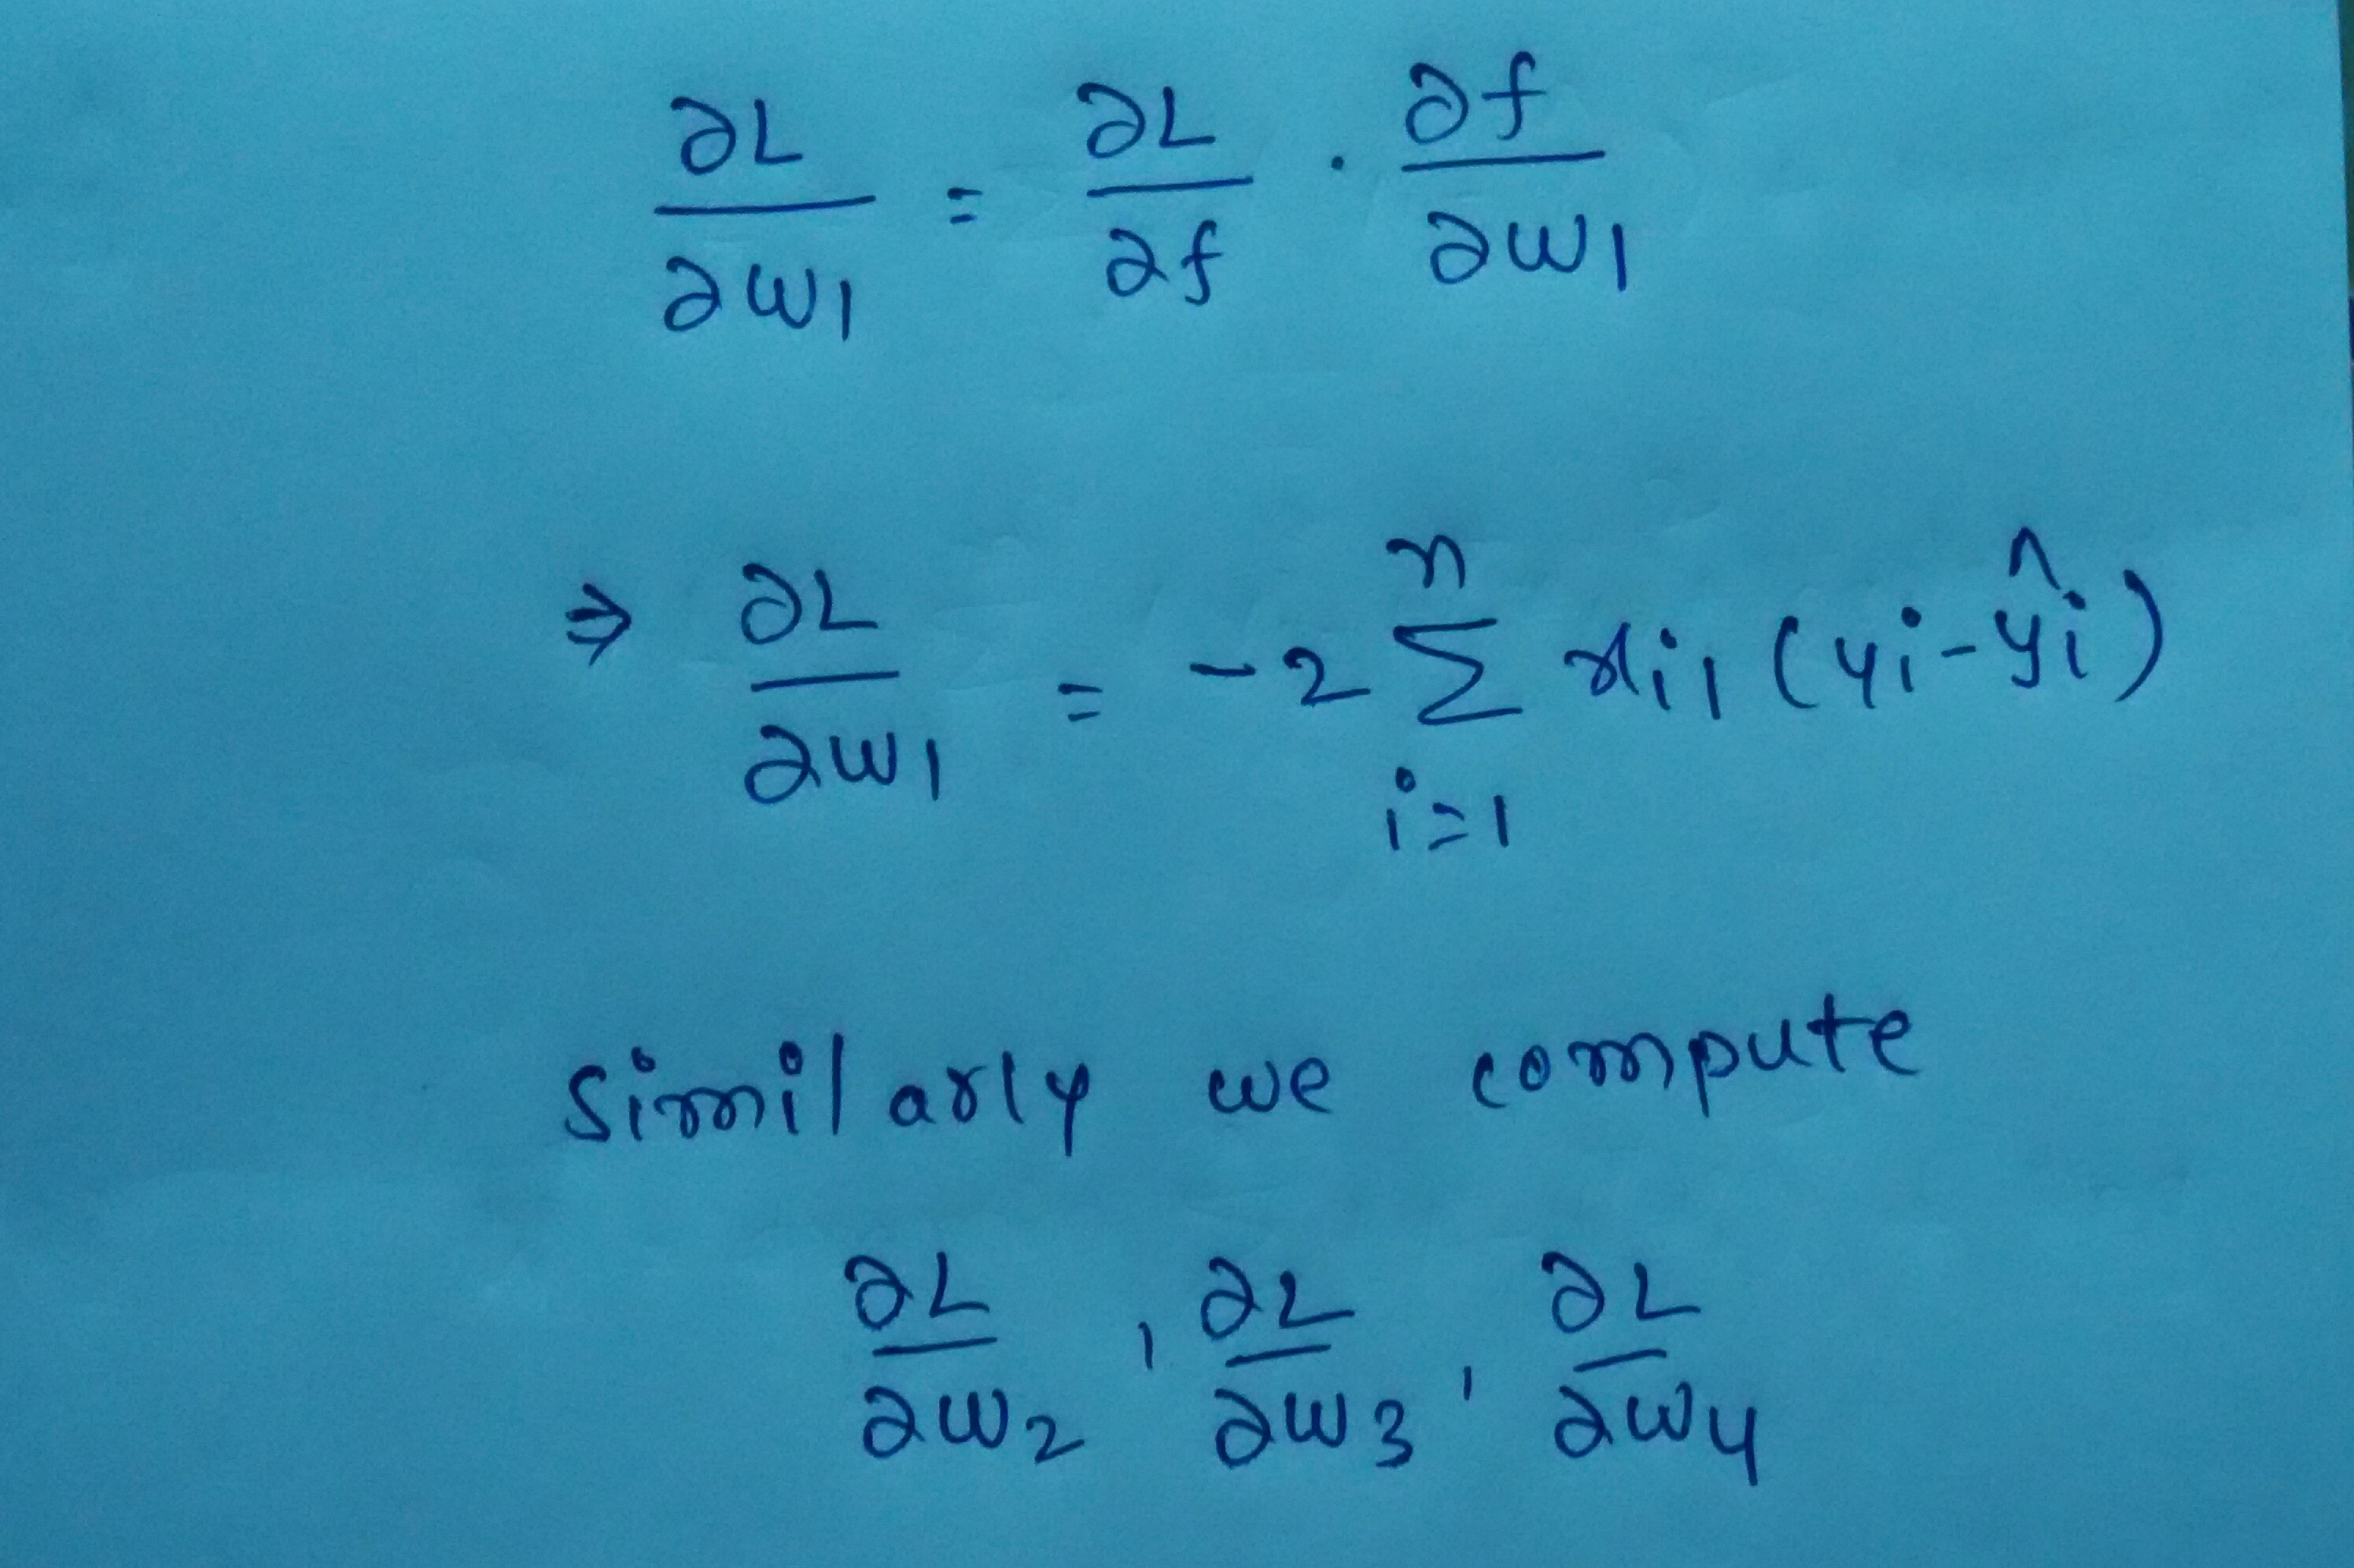 ∂L/∂w1 = ∂L/∂f . ∂f/∂w1
⇒ ∂L/∂w1 = -2 n Σ i=1 xi1 (yi - ŷi)
Similarly we compute
∂L/∂w2 , ∂L/∂w3 , ∂L/∂w4